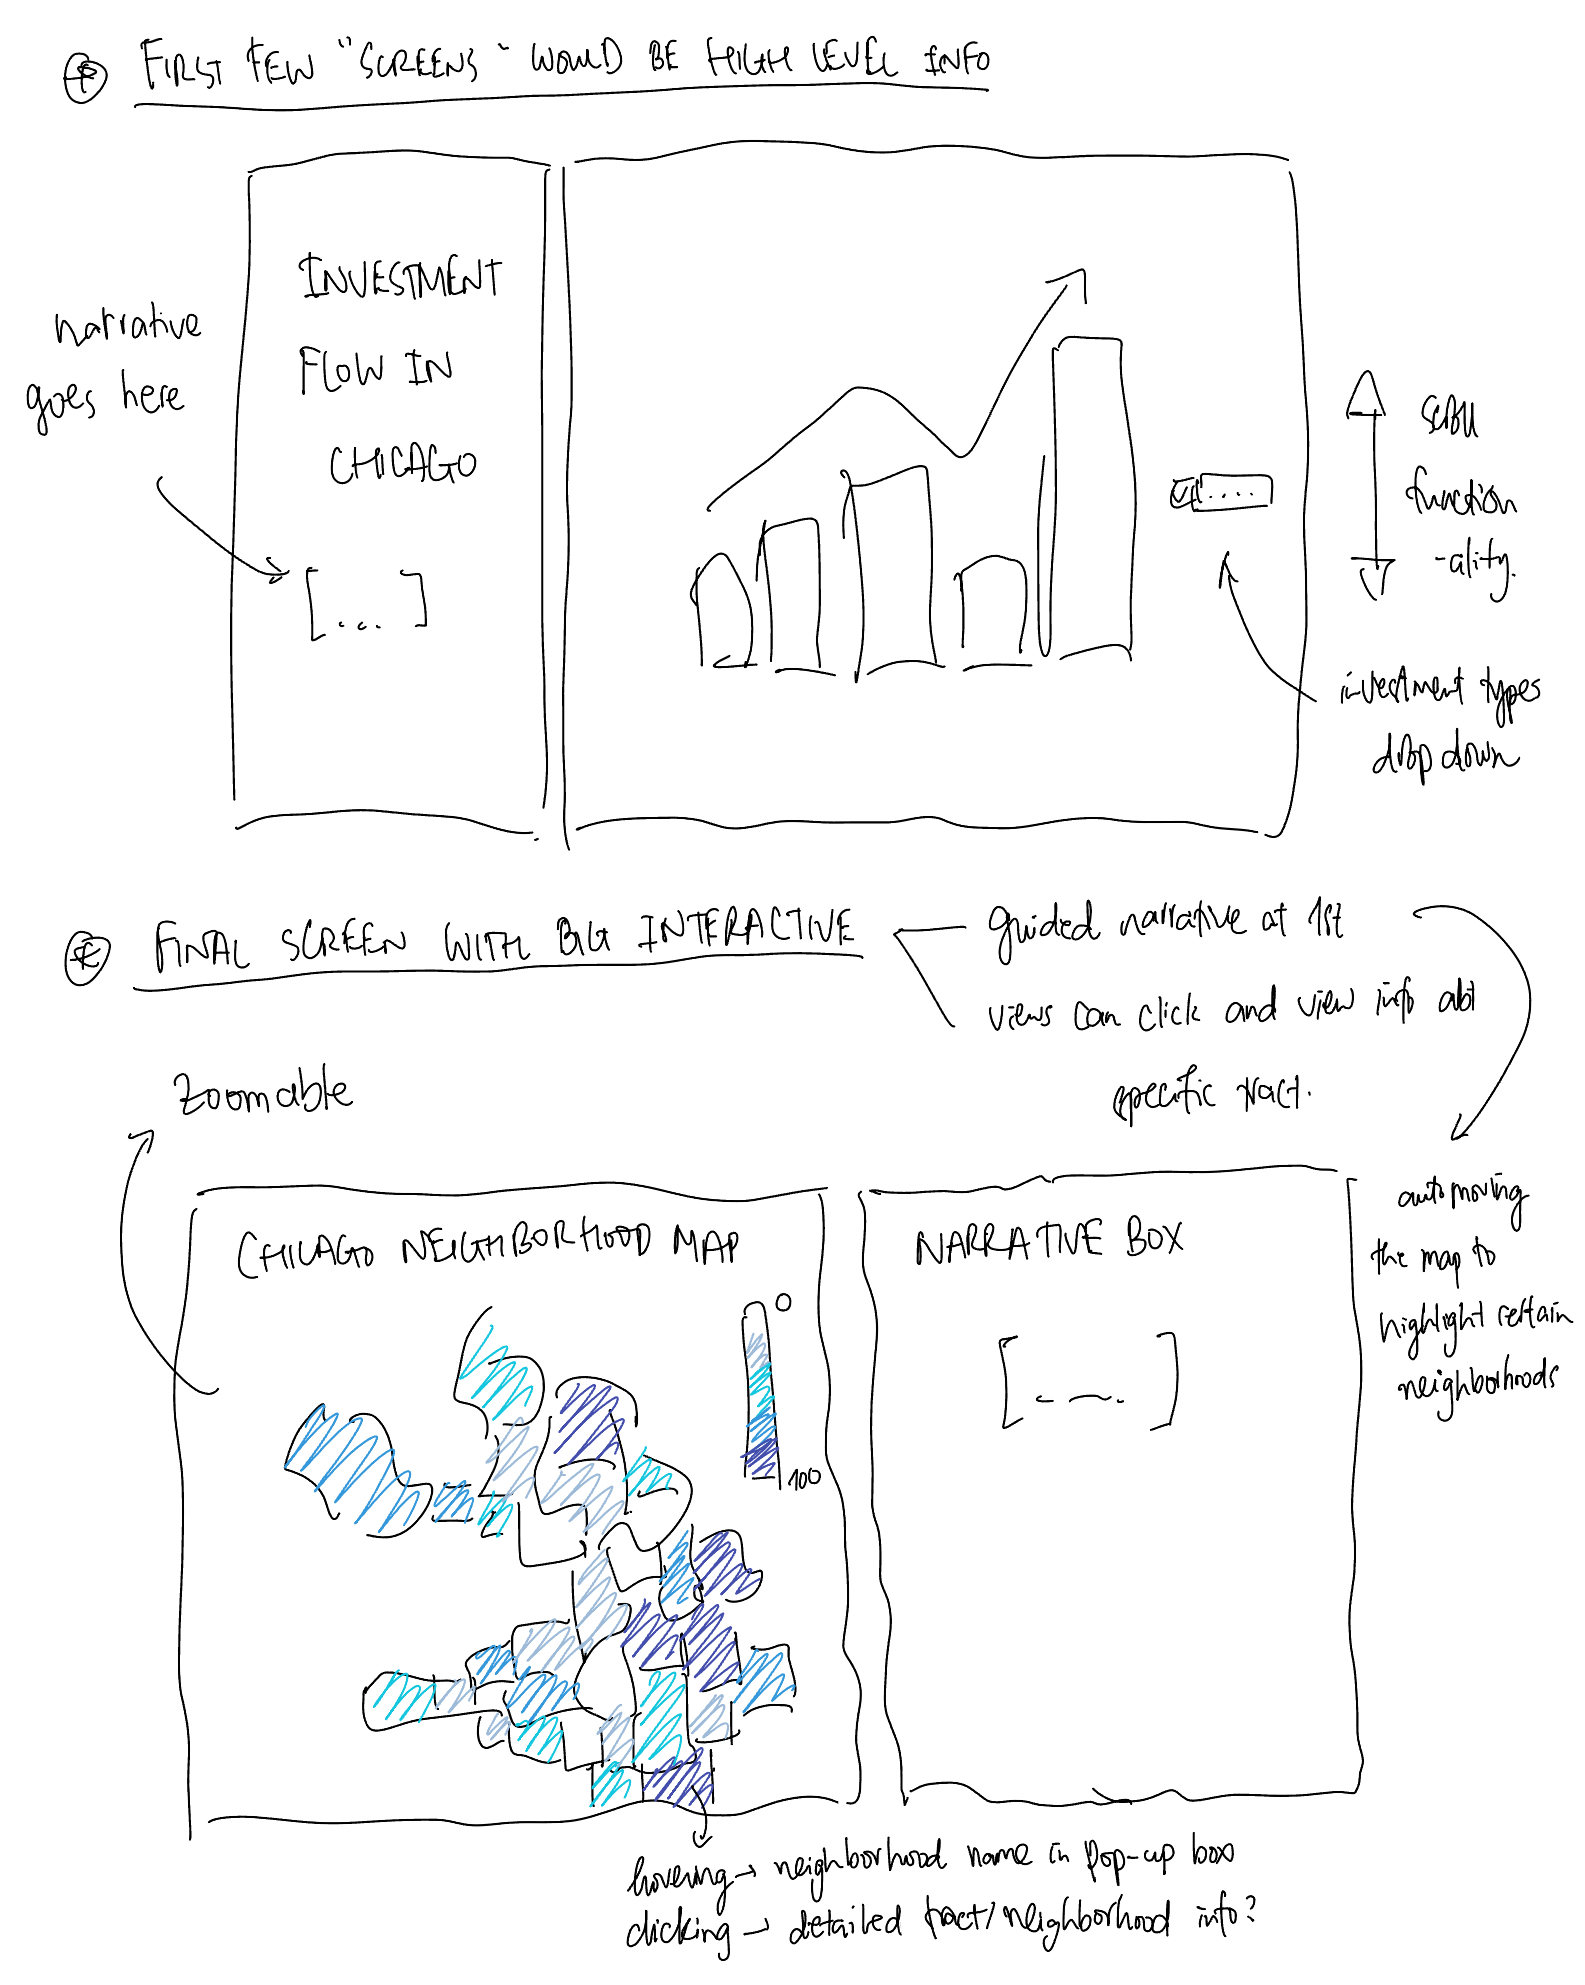 FIRST FEW "SCREENS" WOULD BE HIGH LEVEL INFO
narrative
goes here
INVESTMENT
FLOW IN
CHICAGO
[... ]
....
scroll
function
-ality.
investment types
drop down
FINAL SCREEN WITH BIG INTERACTIVE
guided narrative at 1st
views can click and view info abt
specific tract.
Zoomable
auto moving
the map to
highlight certain
neighborhoods
CHICAGO NEIGHBORHOOD MAP
0
100
NARRATIVE BOX
[ - —. ]
hovering → neighborhood name in pop-up box
clicking → detailed tract/neighborhood info?